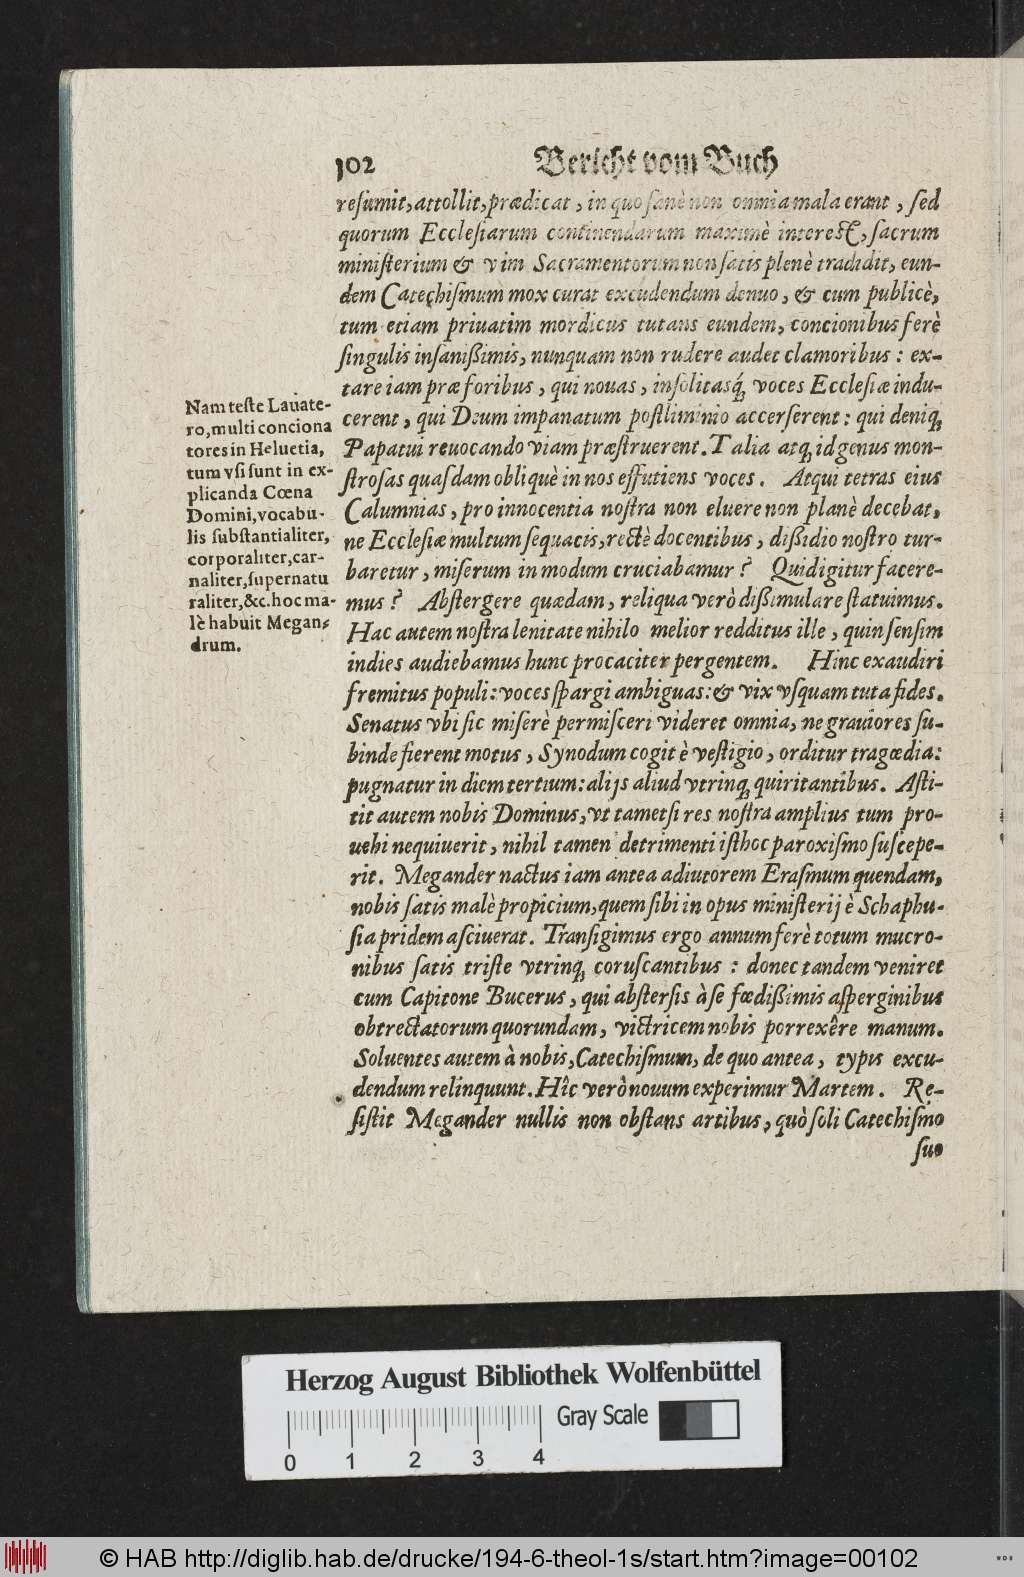 102 Bericht vom Buch
resumit, attollit, prædicat, in quo sanè non omnia mala erant, sed
quorum Ecclesiarum continendarum maximè interest, sacrum
ministerium & vim Sacramentorum non satis plenè tradidit, eun-
dem Catechismum mox curat excudendum denuo, & cum publicè,
tum etiam priuatim mordicus tutans eundem, concionibus ferè
singulis insanißimis, nunquam non rudere audet clamoribus: ex-
tare iam præ foribus, qui nouas, insolitasq́; voces Ecclesiæ indu-
cerent, qui Deum impanatum postliminio accerserent: qui deniq;
Papatui reuocando viam præstruerent. Talia atq; id genus mon-
strosas quasdam obliquè in nos effutiens voces. Atqui tetras eius
Calumnias, pro innocentia nostra non eluere non planè decebat,
ne Ecclesiæ multum sequacis, rectè docentibus, dißidio nostro tur-
baretur, miserum in modum cruciabamur? Quid igitur facere-
mus? Abstergere quædam, reliqua verò dißimulare statuimus.
Hac autem nostra lenitate nihilo melior redditus ille, quin sensim
indies audiebamus hunc procaciter pergentem. Hinc exaudiri
fremitus populi: voces spargi ambiguas: & vix vsquam tuta fides.
Senatus vbi sic miserè permisceri videret omnia, ne grauiores su-
binde fierent motus, Synodum cogit è vestigio, orditur tragœdia:
pugnatur in diem tertium: alijs aliud vtrinq; quiritantibus. Asti-
tit autem nobis Dominus, vt tametsi res nostra amplius tum pro-
uehi nequiuerit, nihil tamen detrimenti isthoc paroxismo suscepe-
rit. Megander nactus iam antea adiutorem Erasmum quendam,
nobis satis malè propicium, quem sibi in opus ministerij è Schaphu-
sia pridem asciuerat. Transigimus ergo annum ferè totum mucro-
nibus satis triste vtrinq; coruscantibus: donec tandem veniret
cum Capitone Bucerus, qui abstersis à se fœdißimis asperginibus
obtrectatorum quorundam, victricem nobis porrexêre manum.
Soluentes autem à nobis, Catechismum, de quo antea, typis excu-
dendum relinquunt. Hîc verò nouum experimur Martem. Re-
sistit Megander nullis non obstans artibus, quò soli Catechismo
suo
Nam teste Lauate-
ro, multi conciona
tores in Heluetia,
tum vsi sunt in ex-
plicanda Cœna
Domini, vocabu-
lis substantialiter,
corporaliter, car-
naliter, supernatu
raliter, &c. hoc ma-
lè habuit Megan-
drum.
Herzog August Bibliothek Wolfenbüttel
Gray Scale
0 1 2 3 4
© HAB http://diglib.hab.de/drucke/194-6-theol-1s/start.htm?image=00102